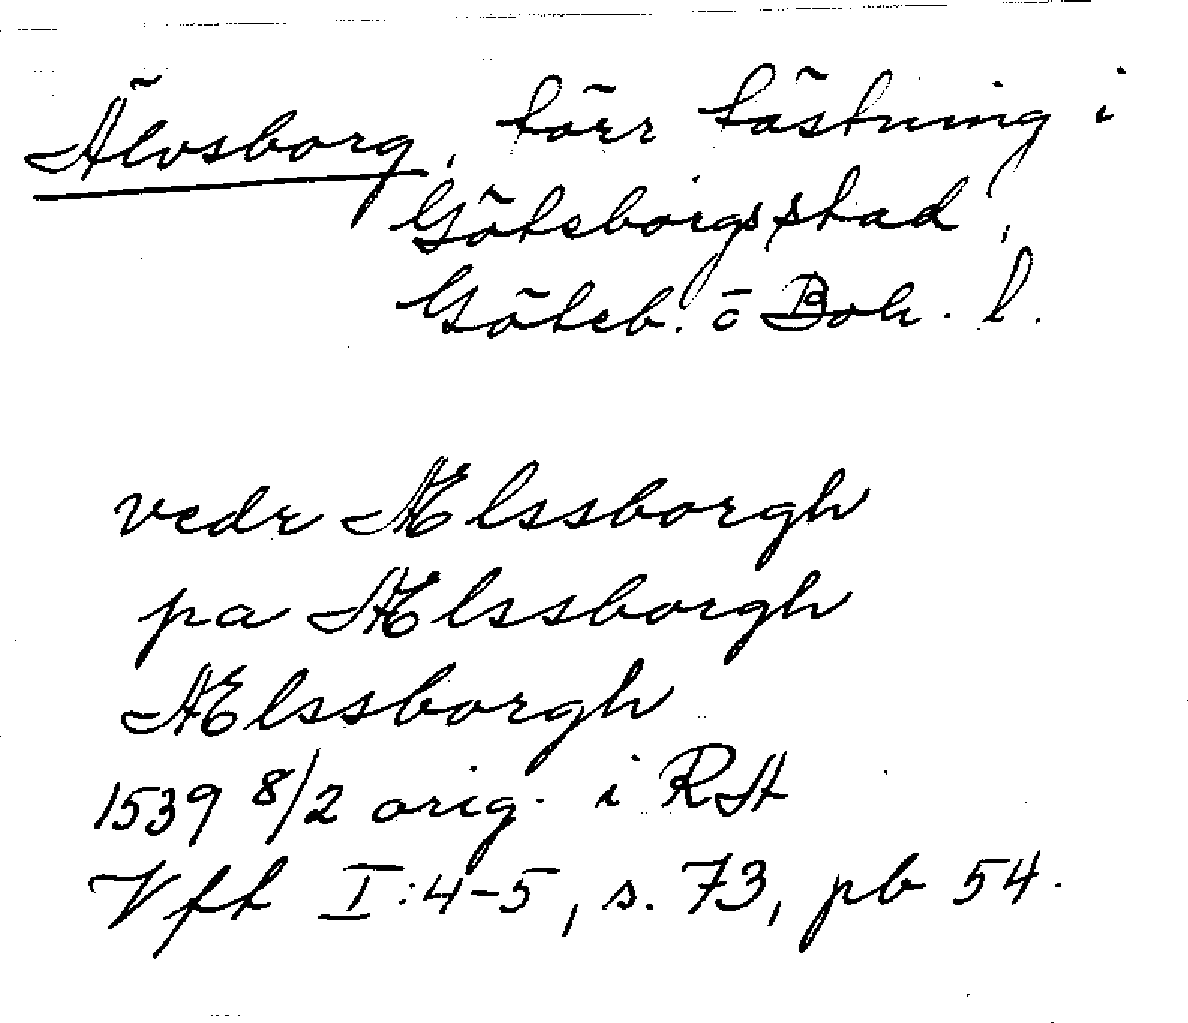 Älvsborg, förr fästning i
Göteborgs stad,
Göteb. o Boh. l.
vedr Ælssborgh
pa Ælssborgh
Ælssborgh
1539 8/2 orig. i RA
Vff I:4-5, s. 73, pb 54.